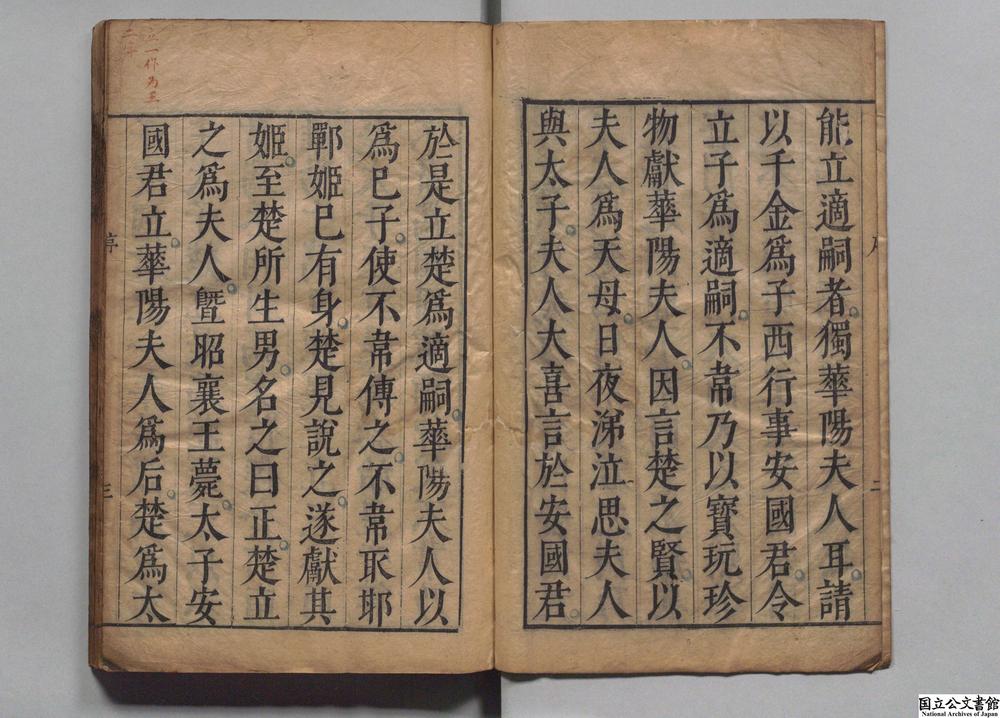 能立適嗣者獨華陽夫人耳請
以千金爲子西行事安國君令
立子爲適嗣不韋乃以寳玩珍
物獻華陽夫人因言楚之賢以
夫人爲天母日夜涕泣思夫人
與太子夫人大喜言於安國君
於是立楚爲適嗣華陽夫人以
爲己子使不韋傅之不韋取邯
鄲姬已有身楚見說之遂獻其
姬至楚所生男名之曰正楚立
之爲夫人曁昭襄王薨太子安
國君立華陽夫人爲后楚爲太
序
二
序
三
立一作爲王
国立公文書館
National Archives of Japan